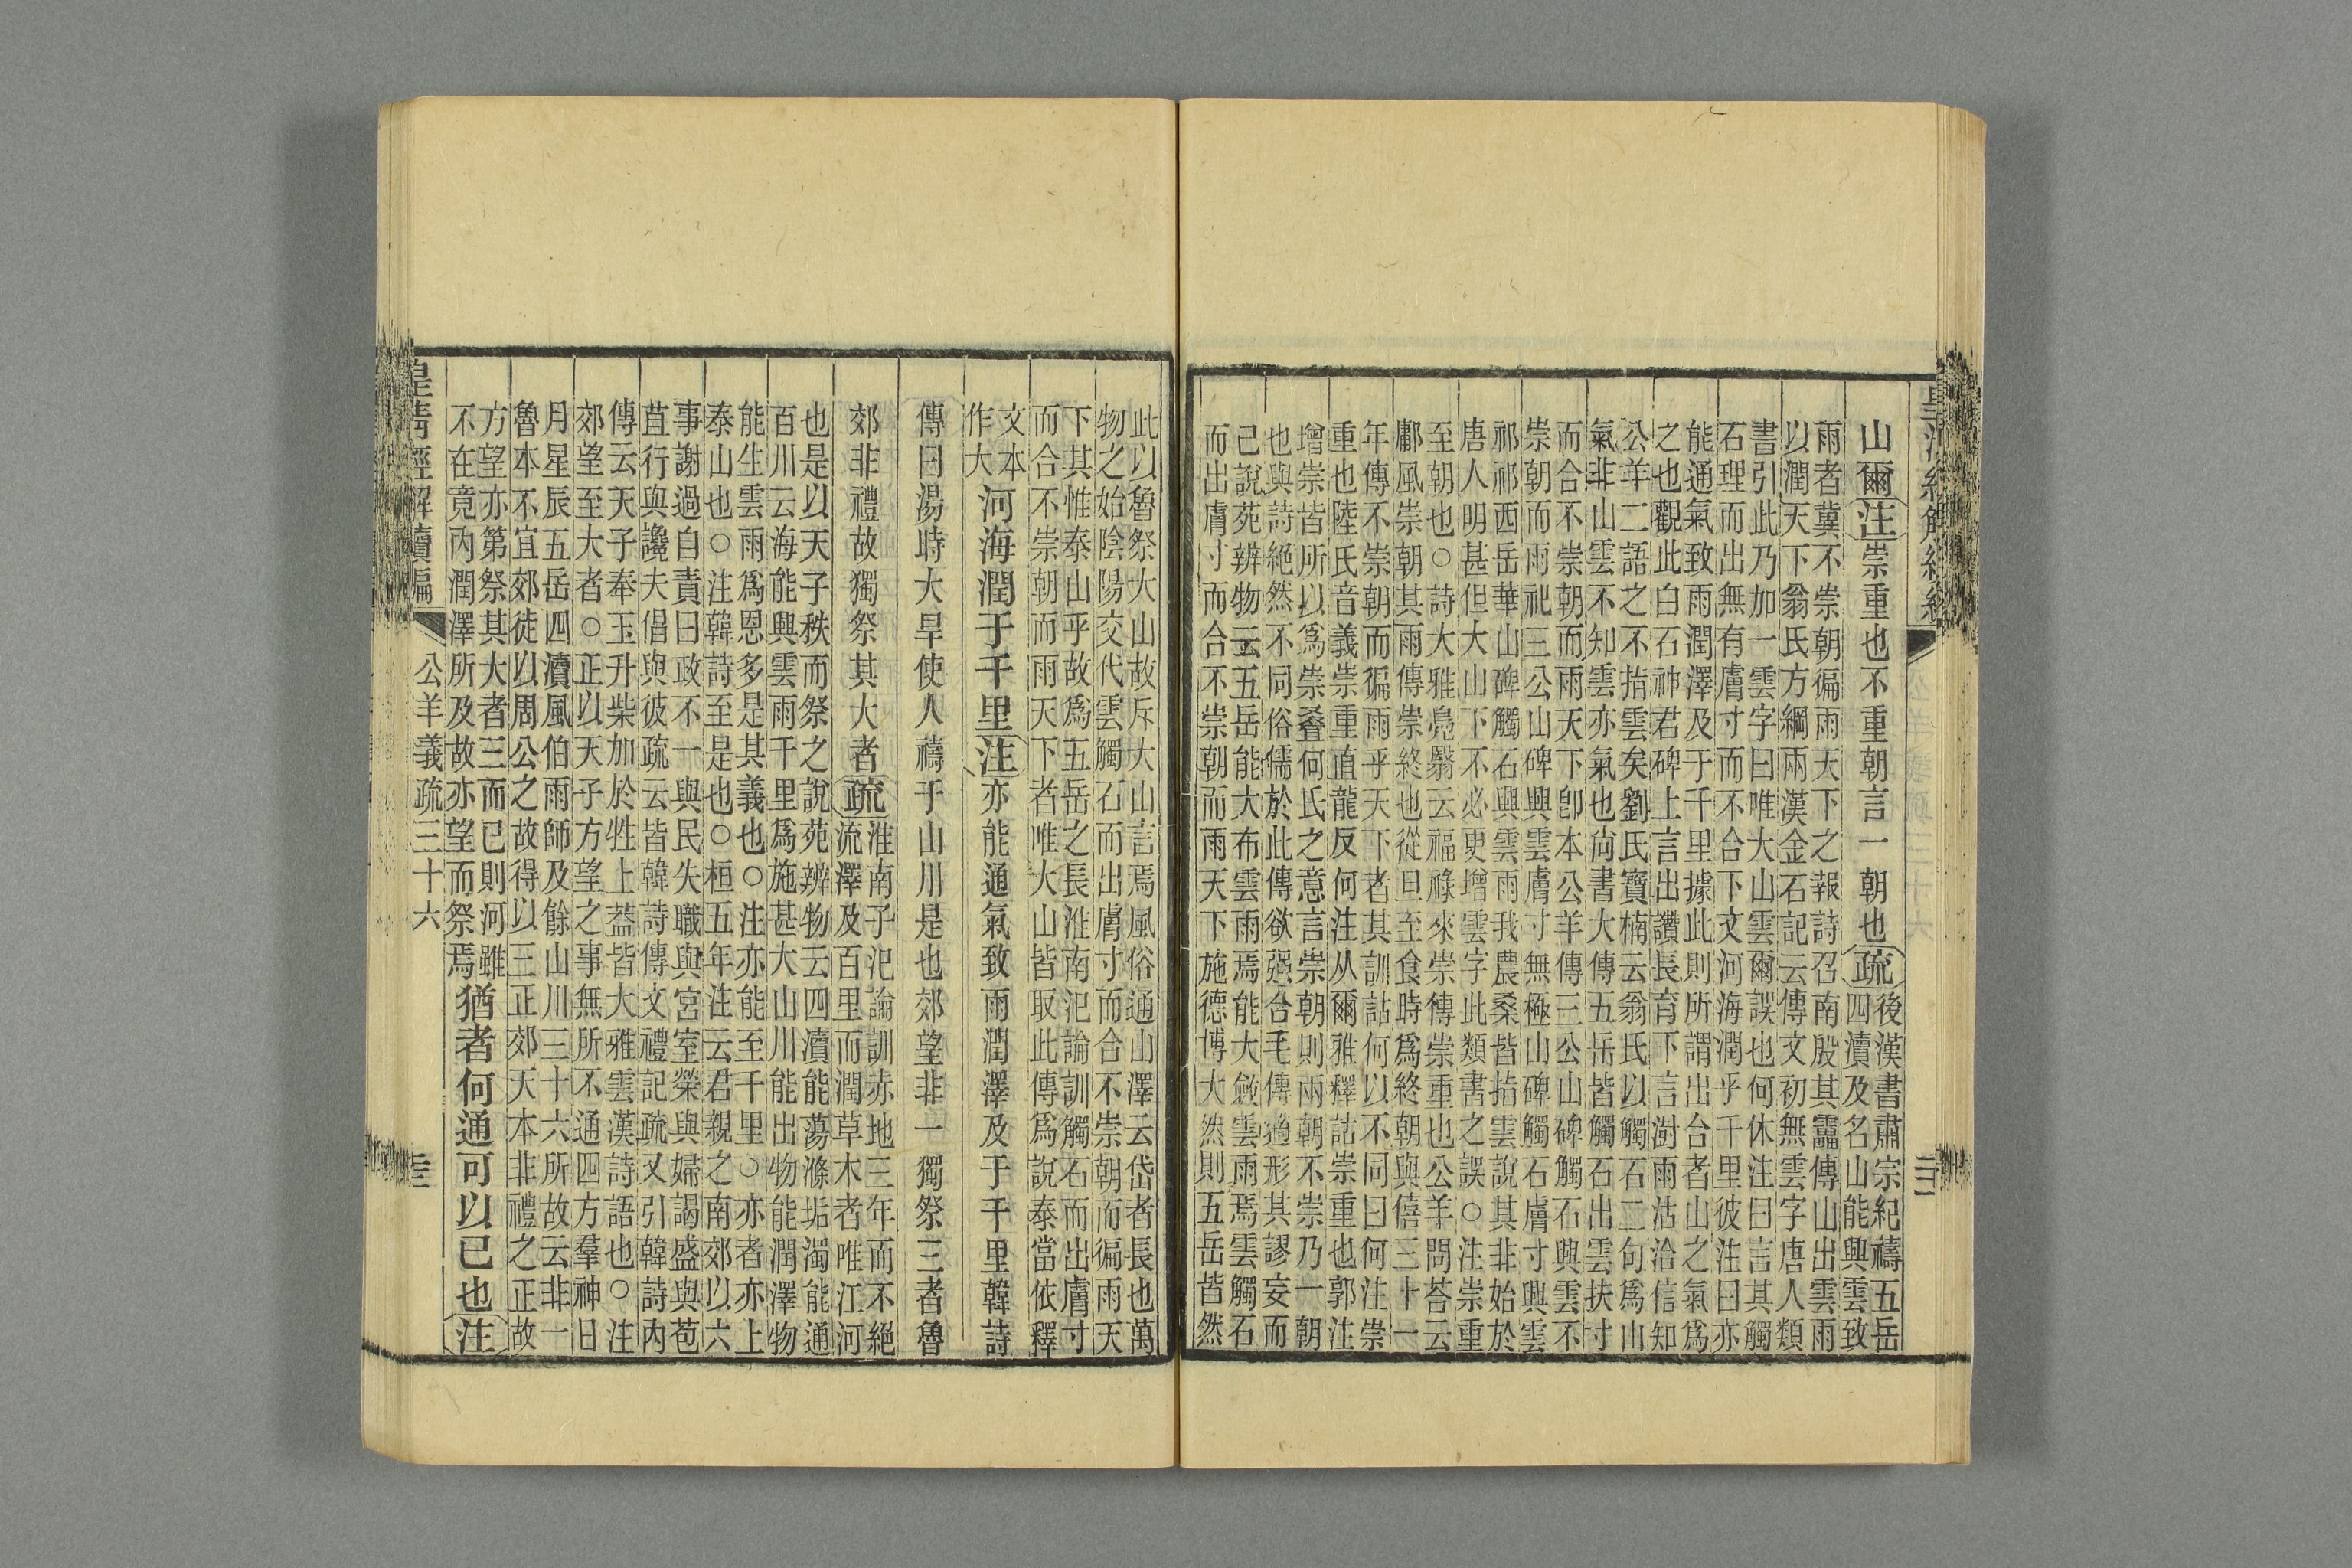 山爾注崇重也不重朝言一朝也疏後漢書肅宗紀禱五岳
四瀆及名山能興雲致
雨者冀不崇朝徧雨天下之報詩召南殷其靁傳山出雲雨
以潤天下翁氏方綱兩漢金石記云傳文初無雲字唐人類
書引此乃加一雲字曰唯大山雲爾誤也何休注曰言其觸
石理而出無有膚寸而不合下文河海潤乎千里彼注曰亦
能通氣致雨潤澤及于千里據此則所謂出合者山之氣爲
之也觀此白石神君碑上言出讚長育下言澍雨沾洽信知
公羊二語之不指雲矣劉氏寶楠云翁氏以觸石二句爲山
氣非山雲不知雲亦氣也尚書大傳五岳皆觸石出雲扶寸
而合不崇朝而雨天下卽本公羊傳三公山碑觸石興雲不
崇朝而雨祀三公山碑興雲膚寸無極山碑觸石膚寸興雲
祁祁西岳華山碑觸石興雲雨我農桑皆指雲說其非始於
唐人明甚但大山下不必更增雲字此類書之誤○注崇重
至朝也○詩大雅鳧鷖云福祿來崇傳崇重也公羊問荅云
鄘風崇朝其雨傳崇終也從旦至食時爲終朝與僖三十一
年傳不崇朝而徧雨乎天下者其訓詁何以不同曰何注崇
重也陸氏音義崇重直龍反何注从爾雅釋詁崇重也郭注
增崇皆所以爲崇叠何氏之意言崇朝則兩朝不崇乃一朝
也與詩絕然不同俗儒於此傳欲强合毛傳適形其謬妄而
已說苑辨物云五岳能大布雲雨焉能大斂雲雨焉雲觸石
而出膚寸而合不崇朝而雨天下施德博大然則五岳皆然
此以魯祭大山故斥大山言焉風俗通山澤云岱者長也萬
物之始陰陽交代雲觸石而出膚寸而合不崇朝而徧雨天
下其惟泰山乎故爲五岳之長淮南氾論訓觸石而出膚寸
而合不崇朝而雨天下者唯大山皆取此傳爲說泰當依釋
文本
作大河海潤于千里注亦能通氣致雨潤澤及于千里韓詩
傳曰湯時大旱使人禱于山川是也郊望非一獨祭三者魯
郊非禮故獨祭其大者疏淮南子氾論訓赤地三年而不絕
流澤及百里而潤草木者唯江河
也是以天子秩而祭之說苑辨物云四瀆能蕩滌垢濁能通
百川云海能興雲雨千里爲施甚大山川能出物能潤澤物
能生雲雨爲恩多是其義也○注亦能至千里○亦者亦上
泰山也○注韓詩至是也○桓五年注云君親之南郊以六
事謝過自責曰政不一與民失職與宮室榮與婦謁盛與苞
苴行與讒夫倡與彼疏云皆韓詩傳文禮記疏又引韓詩內
傳云天子奉玉升柴加於牲上葢皆大雅雲漢詩語也○注
郊望至大者○正以天子方望之事無所不通四方羣神日
月星辰五岳四瀆風伯雨師及餘山川三十六所故云非一
魯本不宜郊徒以周公之故得以三正郊天本非禮之正故
方望亦第祭其大者三而已則河雖
不在竟內潤澤所及故亦望而祭焉猶者何通可以已也注
皇清經解續編
公羊義疏三十六